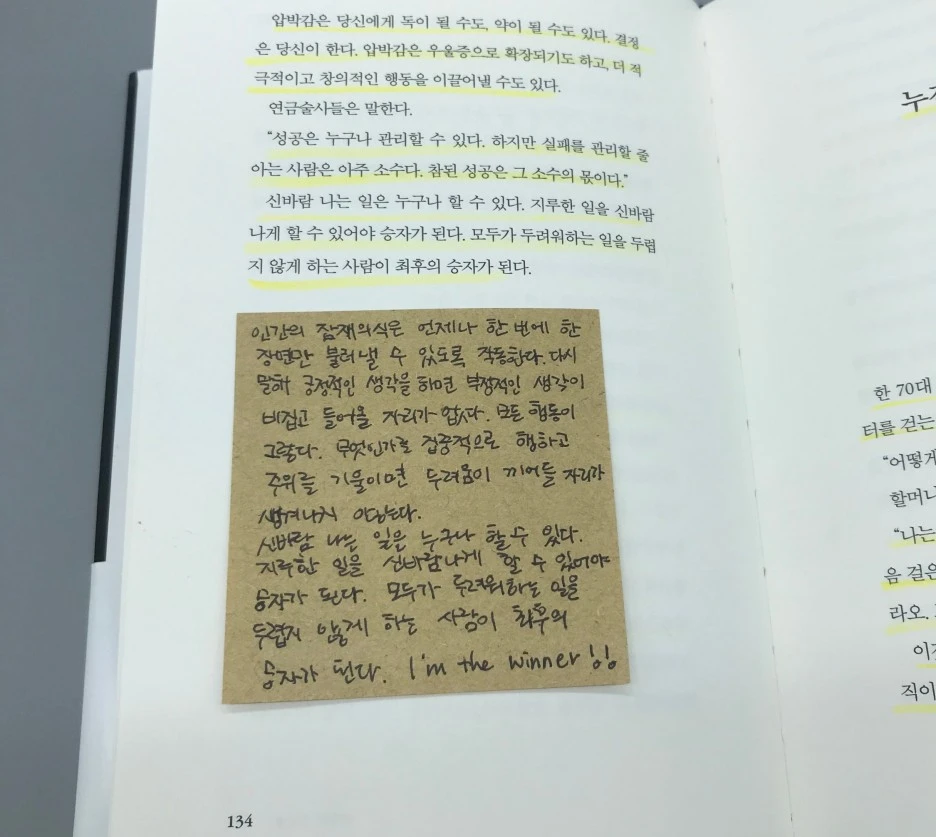 압박감은 당신에게 독이 될 수도, 약이 될 수도 있다. 결정
은 당신이 한다. 압박감은 우울증으로 확장되기도 하고, 더 적
극적이고 창의적인 행동을 이끌어낼 수도 있다.
연금술사들은 말한다.
“성공은 누구나 관리할 수 있다. 하지만 실패를 관리할 줄
아는 사람은 아주 소수다. 참된 성공은 그 소수의 몫이다.”
신바람 나는 일은 누구나 할 수 있다. 지루한 일을 신바람
나게 할 수 있어야 승자가 된다. 모두가 두려워하는 일을 두렵
지 않게 하는 사람이 최후의 승자가 된다.
인간의 잠재의식은 언제나 한 번에 한
장면만 불러낼 수 있도록 작동한다. 다시
말해 긍정적인 생각을 하면 부정적인 생각이
비집고 들어올 자리가 없다. 모든 행동이
그렇다. 무엇인가를 집중적으로 행하고
주위를 기울이면 두려움이 끼어들 자리가
생겨나지 않는다.
신바람 나는 일은 누구나 할 수 있다.
지루한 일을 신바람나게 할 수 있어야
승자가 된다. 모두가 두려워하는 일을
두렵지 않게 하는 사람이 최후의
승자가 된다. I'm the winner!!
134
한 70대
터를 걷는
“어떻게
할머니
“나는
음 걸은
라오.
직이